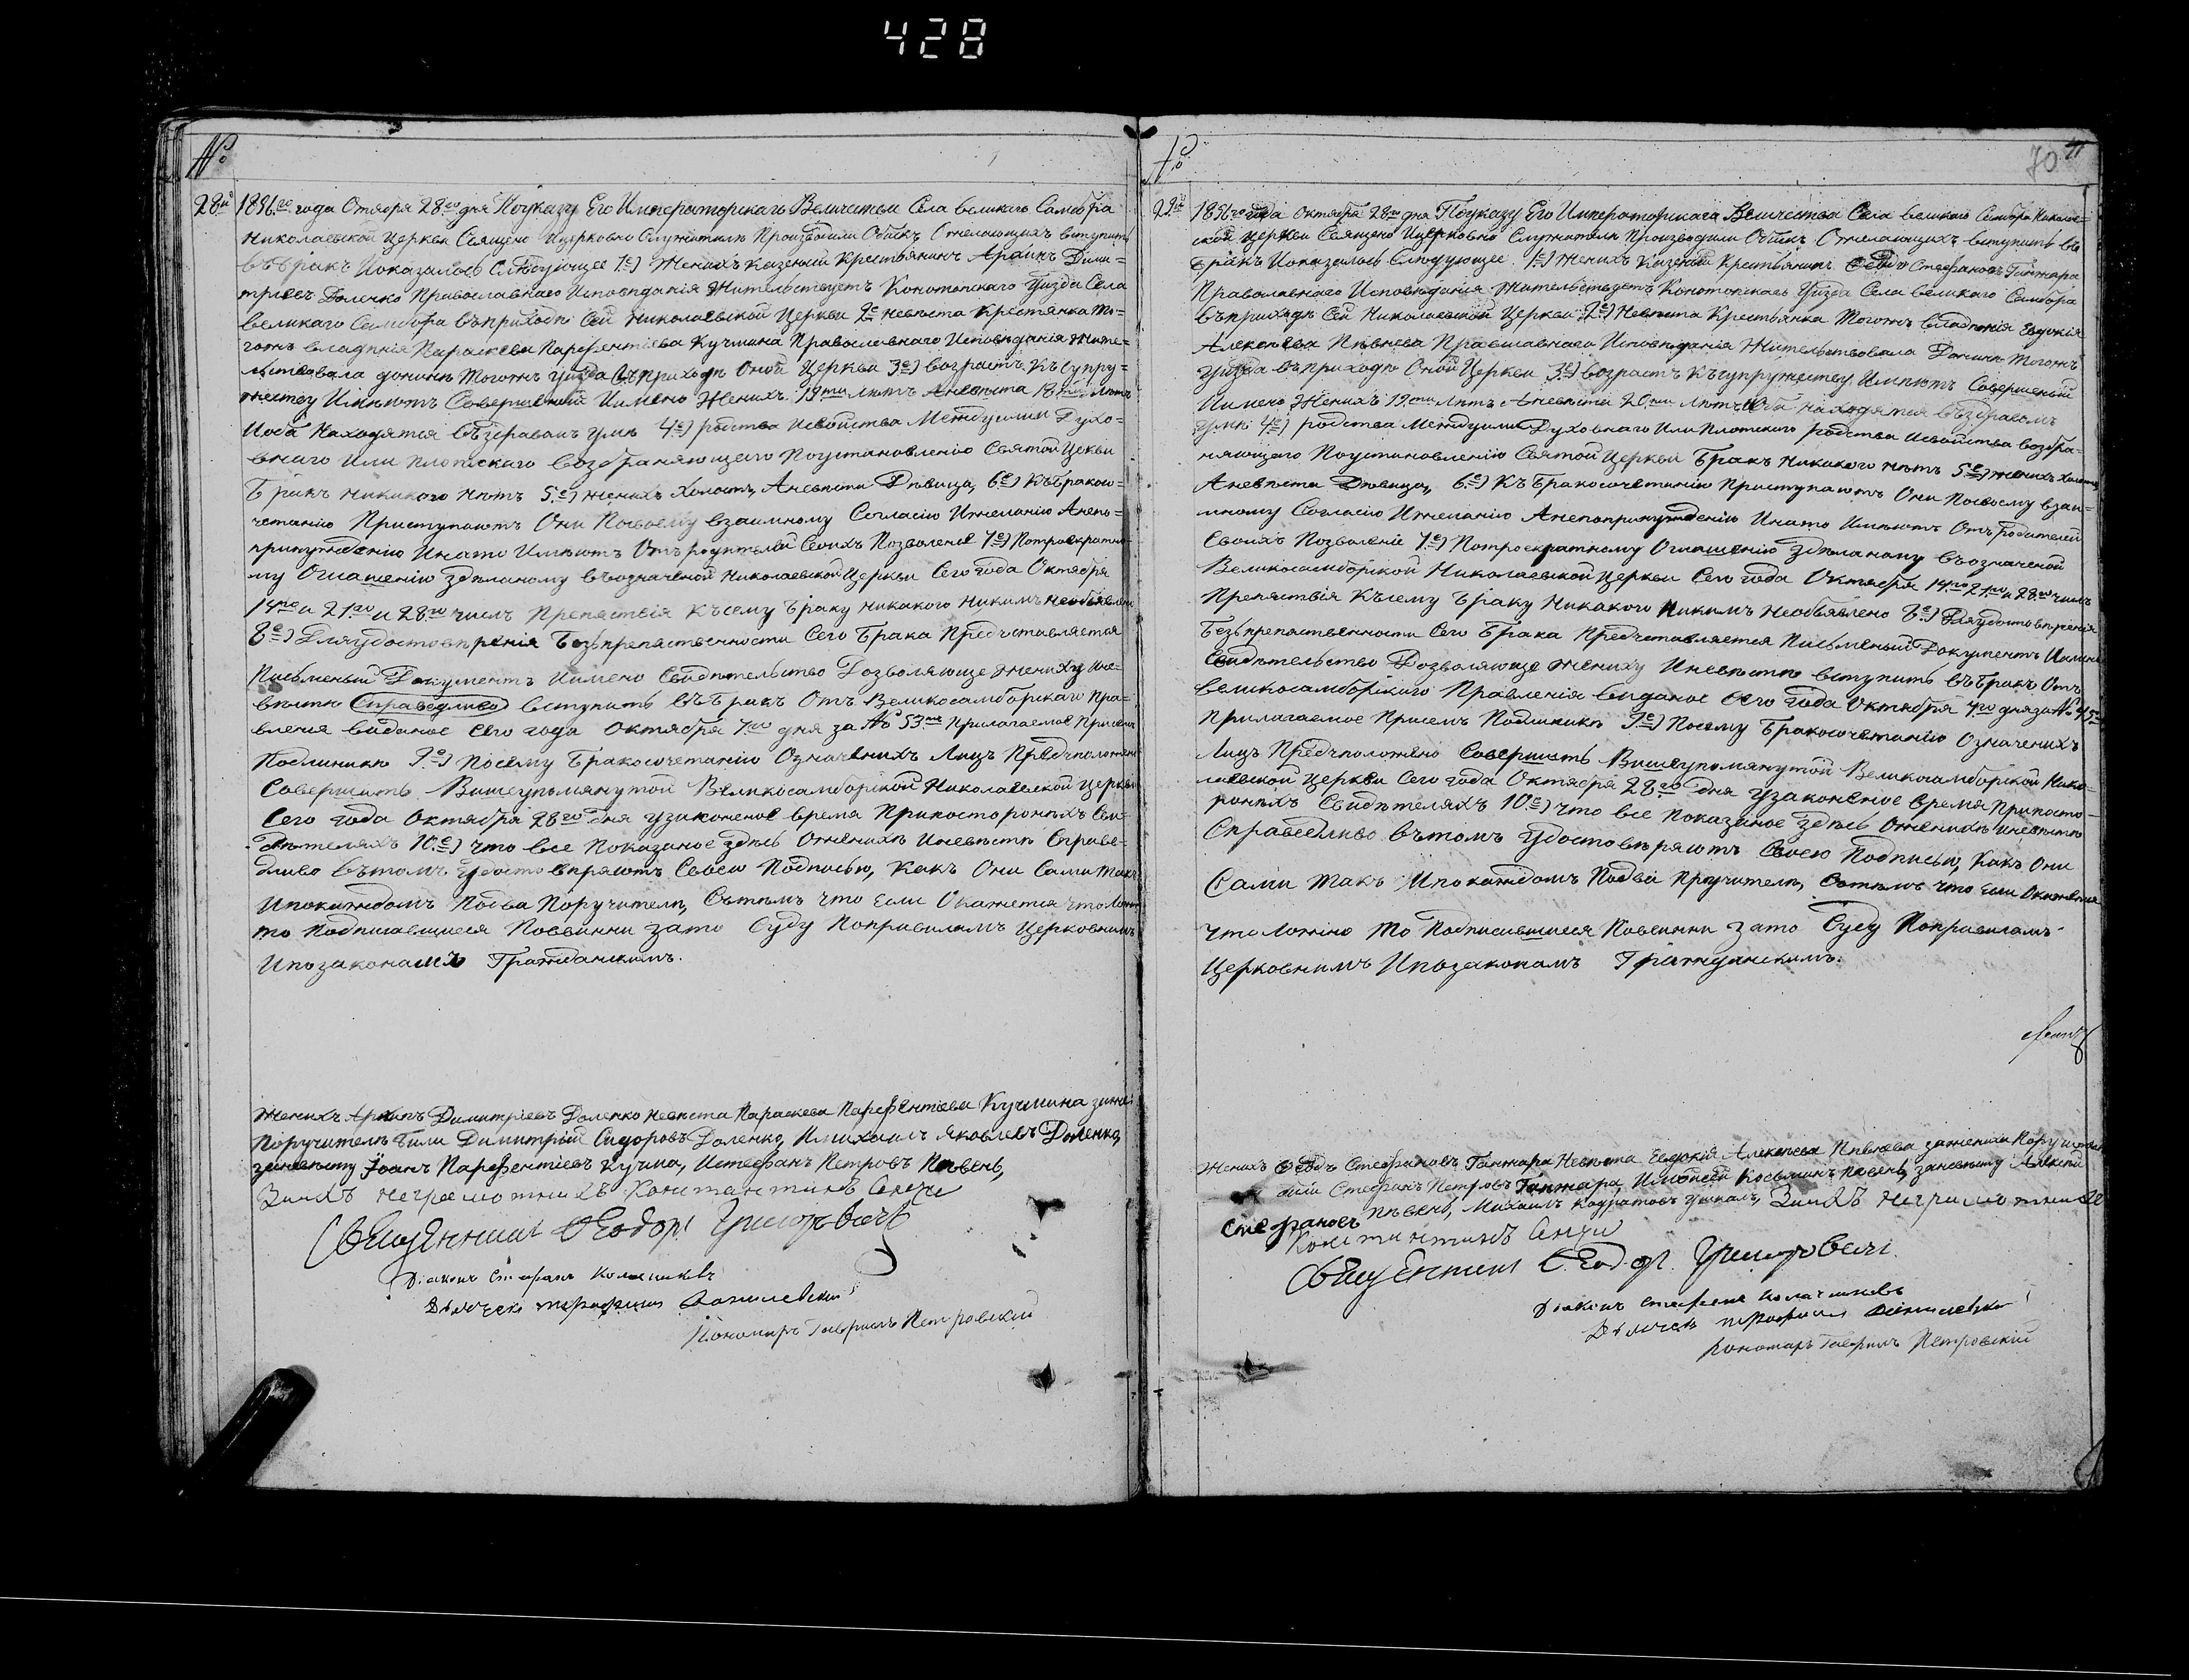 428
№
28й 1856го года Октября 28го дня Поуказу Его Императорскаго Величества Села великаго Самбора
Николаевской Церкви Священо Ицерковно Служители Производили Обиск Ожелающихъ вступить
въбракъ Иоказалось Следующее 1е) Женихъ казеный Крестьянинъ Архипъ Дими=
тріевъ Доленко Православнаго Исповѣданія Жительствуетъ Конотопскаго Уизда Села
великаго Самбора въприходѣ Сей Николаевской Церкви 2е Невѣста Крестянка То=
гожъ владѣнія Параскева Парфентіева Кучмина Православнаго Исповѣданія Жите=
льствовала донинѣ Тогожъ Уизда въприходѣ Оной Церкви 3е) возрастъ Къ Супру=
жеству Имѣютъ Совершеный Имено Женихъ 19ти лѣтъ Аневѣста 18ти лѣтъ
Иоба Находятся въздравомъ умѣ 4е) родства Исвойства Междуими Духо=
внаго Или плотскаго возбраняющаго Поустановленію Святой Церкви
Бракъ никакого нѣтъ 5е) женихъ Холостъ, Аневѣста Дѣвица, 6е) Къбракосо=
четанію Приступаютъ Они Посвоему взаимному Согласію Ижеланію Анепо=
принужденію Инато Имѣютъ Отъ родителей Своихъ Позволеніе 7е) Потроекратно=
му Оглашенію здѣланому въозначеной Николаевской Церкви Сего года Октября
14го и 21го и 28го числъ Препяствія Къ сему браку никакого Никимъ необъявлено
8е) Дляудостовѣренія Безпрепяственности Сего Брака Предъставляется
Письменый Документъ Иимено Свидѣтельство Дозволяюще жениху Ине=
вѣсти Справедливо вступить въбракъ Отъ Великосамборскаго Пра=
вленія виданое Сего года Октября 7го дня за № 53мъ Прилагаемое Присемъ
Подлиникѣ 9е) Посему Бракосочетанію Означенихъ Лицъ Предположено
Совершить Вишеупомянутой Великосамборской Николаевской Церкви
Сего года Октября 28го дня узаконеное время Припостороннѣхъ Сви=
дѣтеляхъ 10е) что все Показаное здѣсь Оженихѣ Иневѣстѣ Справе=
дливо вътомъ Удостовѣряютъ Своею Подписью, Какъ Они Сами такъ
Ипокаждомъ Подва Поручители, Сътѣмъ что Если Окажется чтоложно
то Подписавщиеся Повинни зато Суду Поправиламъ Церковнимъ
Ипозаконамъ Гражданскимъ.
Женихъ Архипъ Димитріевъ Доленко Невѣста Параскева Парфентіева Кучмина
Поручитель били Димитрій Сидоровъ Доленко, Имихаилъ Яковлевъ Доленко,
заневѣсту Іоанъ Парфентіевъ Кучма, Истефанъ Петровъ Пѣвень,
Заихъ неграмотнихъ Константинъ
Священникъ Ѳеодоръ Григоровичъ
Діаконъ Стефанъ
Дьячекъ
Пономаръ Гавриилъ Петровскій
№
70
29й 1856го года Октября 28го дна Поуказу Его Императорскаго Величества Села великаго Самбора Николае=
ской Церкви Священо Ицерковно Служители Производили Обиск Ожелающихъ вступить въ
бракъ Иоказалось Следующее 1е) Женихъ Казеный Крестьянинъ Ѳеодоръ Стефановъ Ганжара
Православнаго Исповѣданія Жительствуетъ Конотопскаго Уизда Села великаго Самбора
въприходѣ Сей Николаевской Церкви 2е) Невѣста Крестьянка Тогожъ владѣнія Евдокія
Алексѣева Пѣвнева Православнаго Исповѣданія Жительствовала Донинѣ Тогожъ
Уизда въприходѣ Оной Церкви 3е) возрастъ Късупружеству Имѣютъ Совершеный
Иимено Женихъ 19ти Лѣтъ Аневѣста 20ти Лѣтъ Иоба Находятся въздравомъ
умѣ 4е) родства Междуими Духовнаго Или плотскаго родства Исвойства возбра=
няющаго Поустановленію Святой Церкви Бракъ Никакого нѣтъ 5е) женихъ Холостъ
Аневѣста Дѣвица, 6е) Къ Бракосочетанію Приступаютъ Они Посвоему взаи=
мному Согласію Ижеланію Анепопринужденію Инато Имѣютъ Отъ родителей
Своихъ Позволеніе 7е) Потроекратному Оглашенію здѣланому въозначеной
Великосамборской Николаевской Церкви Сего года Октября 14го 21го и 28го числъ
Препятствія Късему браку Никакого Никимъ Необявлено 8е) Дляудостовѣренія
Безпрепяственности Сего Брака Предъставляется Письменый Документъ Иимено
Свидѣтельство Дозволяюще жениху Иневѣсти вступить въбракъ Отъ
Великосамборскаго Правленія виданое Сего года Октября 7го дня за №
Прилагаемое Присемъ Подлиникѣ 9е) Посему Бракосочетанію Означенихъ
Лицъ Предположено Совершить Вишеупомянутой Великосамборской Нико=
лаевской Церкви Сего года Октября 28го дня узаконеное время Припосто=
роннѣхъ Свидѣтеляхъ 10е) что все Показаное здѣсь Оженихѣ Иневѣстѣ
Справедливо вътомъ Удостовѣряютъ Своею Подписью, Какъ Они
Сами такъ Ипокаждомъ Подва Поручители, Сътѣмъ что Если Окажется
что Ложно то Подписавшиеся Повинни зато Суду Поправиламъ
Церковнимъ Ипозаконамъ Гражданскимъ.
Женихъ Ѳеодоръ Стефановъ Ганжара Невѣста Евдокія Алексѣева Пѣвнева зажениха Поручители
били Стефанъ Петровъ Ганжара, Имойсей Косьминъ Пѣвень, заневѣсту Алексѣй
Стефановъ Пѣвень, Михаилъ Кодратовъ Заихъ неграмотнихъ
Константинъ
Священникъ Ѳеодоръ Григоровичъ
Діаконъ Стефанъ
Дьячекъ
Пономаръ Гавриилъ Петровскій